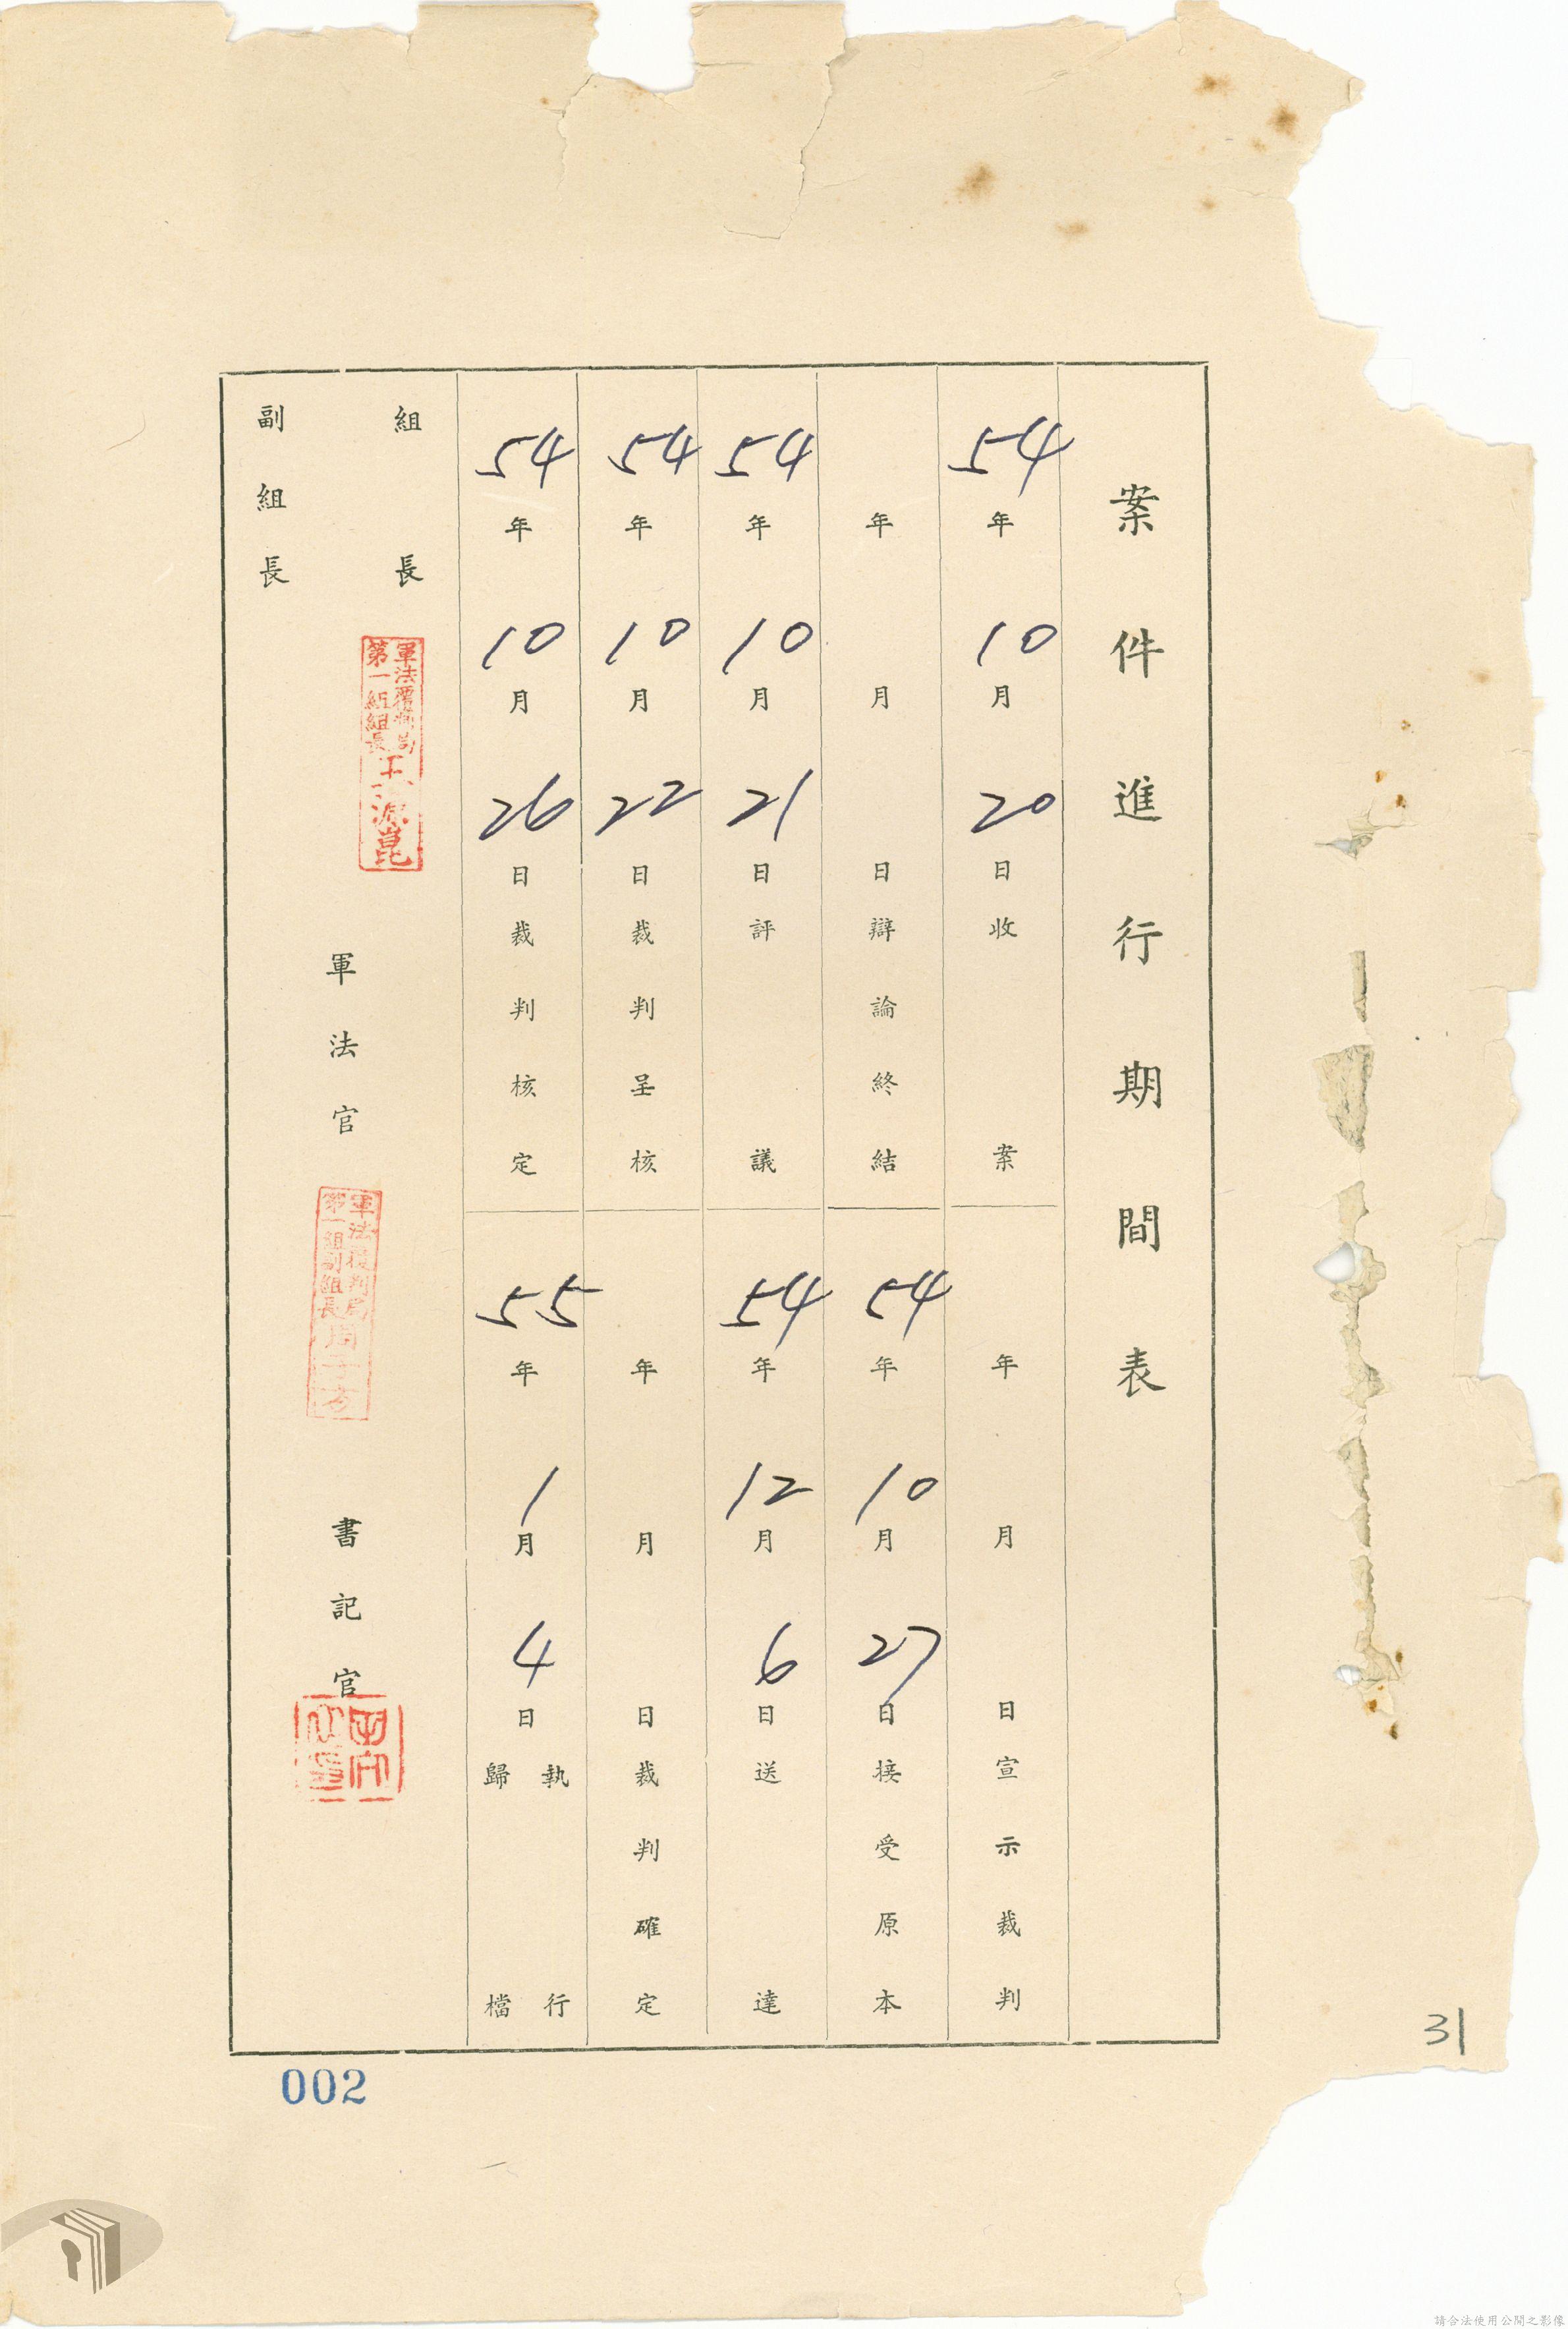 案件進行期間表
54年10月20日收案
年月日宣示裁判
年月日辯論終結
54年10月27日接受原本
54年10月21日評議
54年12月6日送達
54年10月22日裁判呈核
年月日裁判確定
54年10月26日裁判核定
55年1月4日執行歸檔
組長
軍法覆判局
第一組組長
副組長
軍法官
軍法覆判局
第一組副組長周子方
書記官
002
31
請合法使用公開之影像